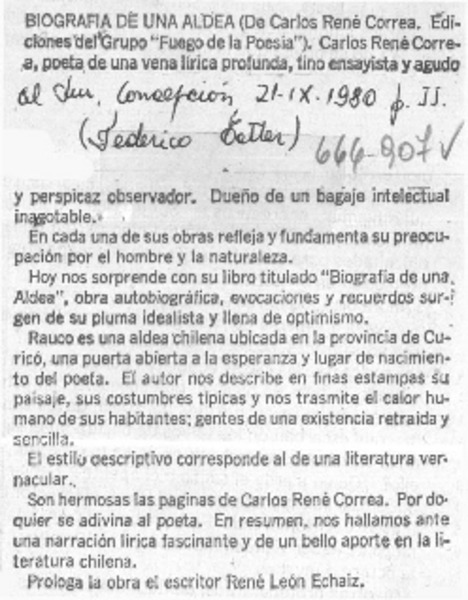 BIOGRAFIA DE UNA ALDEA (De Carlos René Correa. Edi-
ciones del Grupo "Fuego de la Poesía"). Carlos René Corre-
a, poeta de una vena lírica profunda, fino ensayista y agudo
El Sur, Concepción 21-IX-1980 p. II.
(Federico Tatter)
666-907 V
y perspicaz observador. Dueño de un bagaje intelectual
inagotable.
En cada una de sus obras refleja y fundamenta su preocu-
pación por el hombre y la naturaleza.
Hoy nos sorprende con su libro titulado "Biografía de una
Aldea", obra autobiográfica, evocaciones y recuerdos sur-
gen de su pluma idealista y llena de optimismo.
Rauco es una aldea chilena ubicada en la provincia de Cu-
ricó, una puerta abierta a la esperanza y lugar de nacimien-
to del poeta. El autor nos describe en finas estampas su
paisaje, sus costumbres típicas y nos trasmite el calor hu-
mano de sus habitantes; gentes de una existencia retraída y
sencilla.
El estilo descriptivo corresponde al de una literatura ver-
nacular.
Son hermosas las paginas de Carlos René Correa. Por do-
quier se adivina al poeta. En resumen, nos hallamos ante
una narración lírica fascinante y de un bello aporte en la li-
teratura chilena.
Prologa la obra el escritor René León Echaiz.